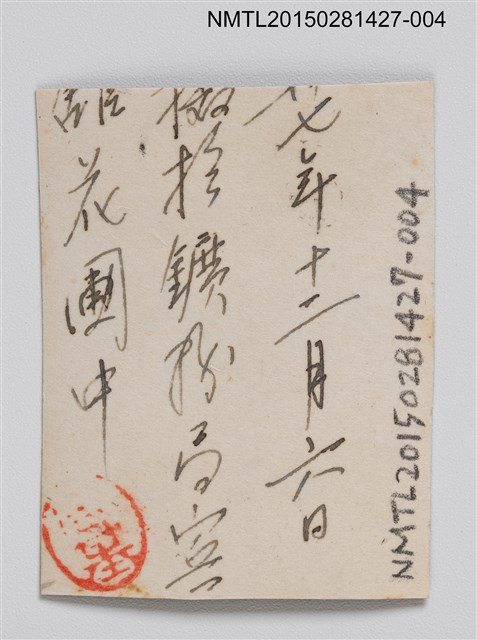 NMTL20150281427-004
七年十二月六日
攝於鑛務局賓
館花園中
NMTL20150281427-004